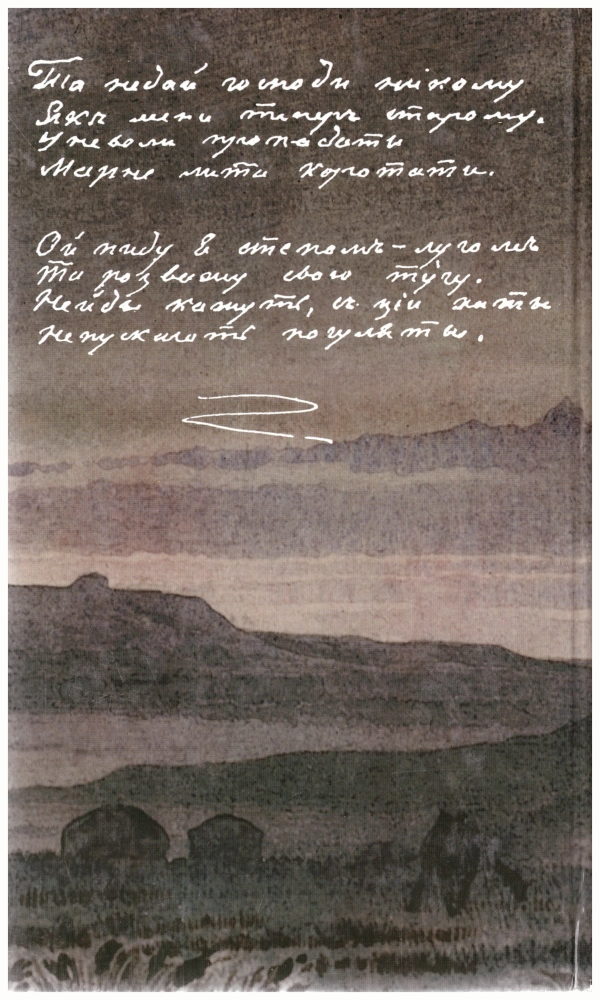 Та недай господи нікому
Якъ мени типеръ старому.
Уневоли пропадати
Марне лита коротати.
Ой пиду я степомъ-лугомъ
Та розважу свою тугу.
Нейды кажуть, съ ціи хаты
Непускають погуляты.